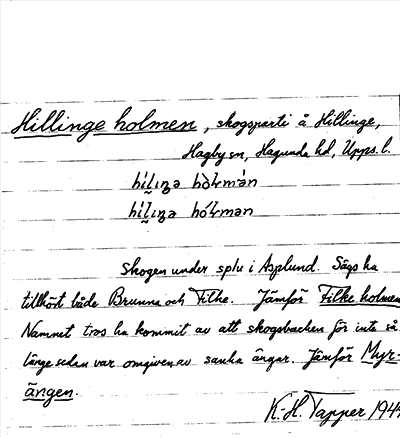 Hillinge holmen, skogsparti å Hillinge,
Hagby sn, Hagunda hd, Upps. l.
Skogen under splu i Asplund. Sägs ha
tillhört både Brunna och Filke. Jämför Filke holmen
Namnet tros ha kommit av att skogsbacken för inte så
länge sedan var omgiven av sanka ängar. Jämför Myr-
ängen.
K.-H. Tapper